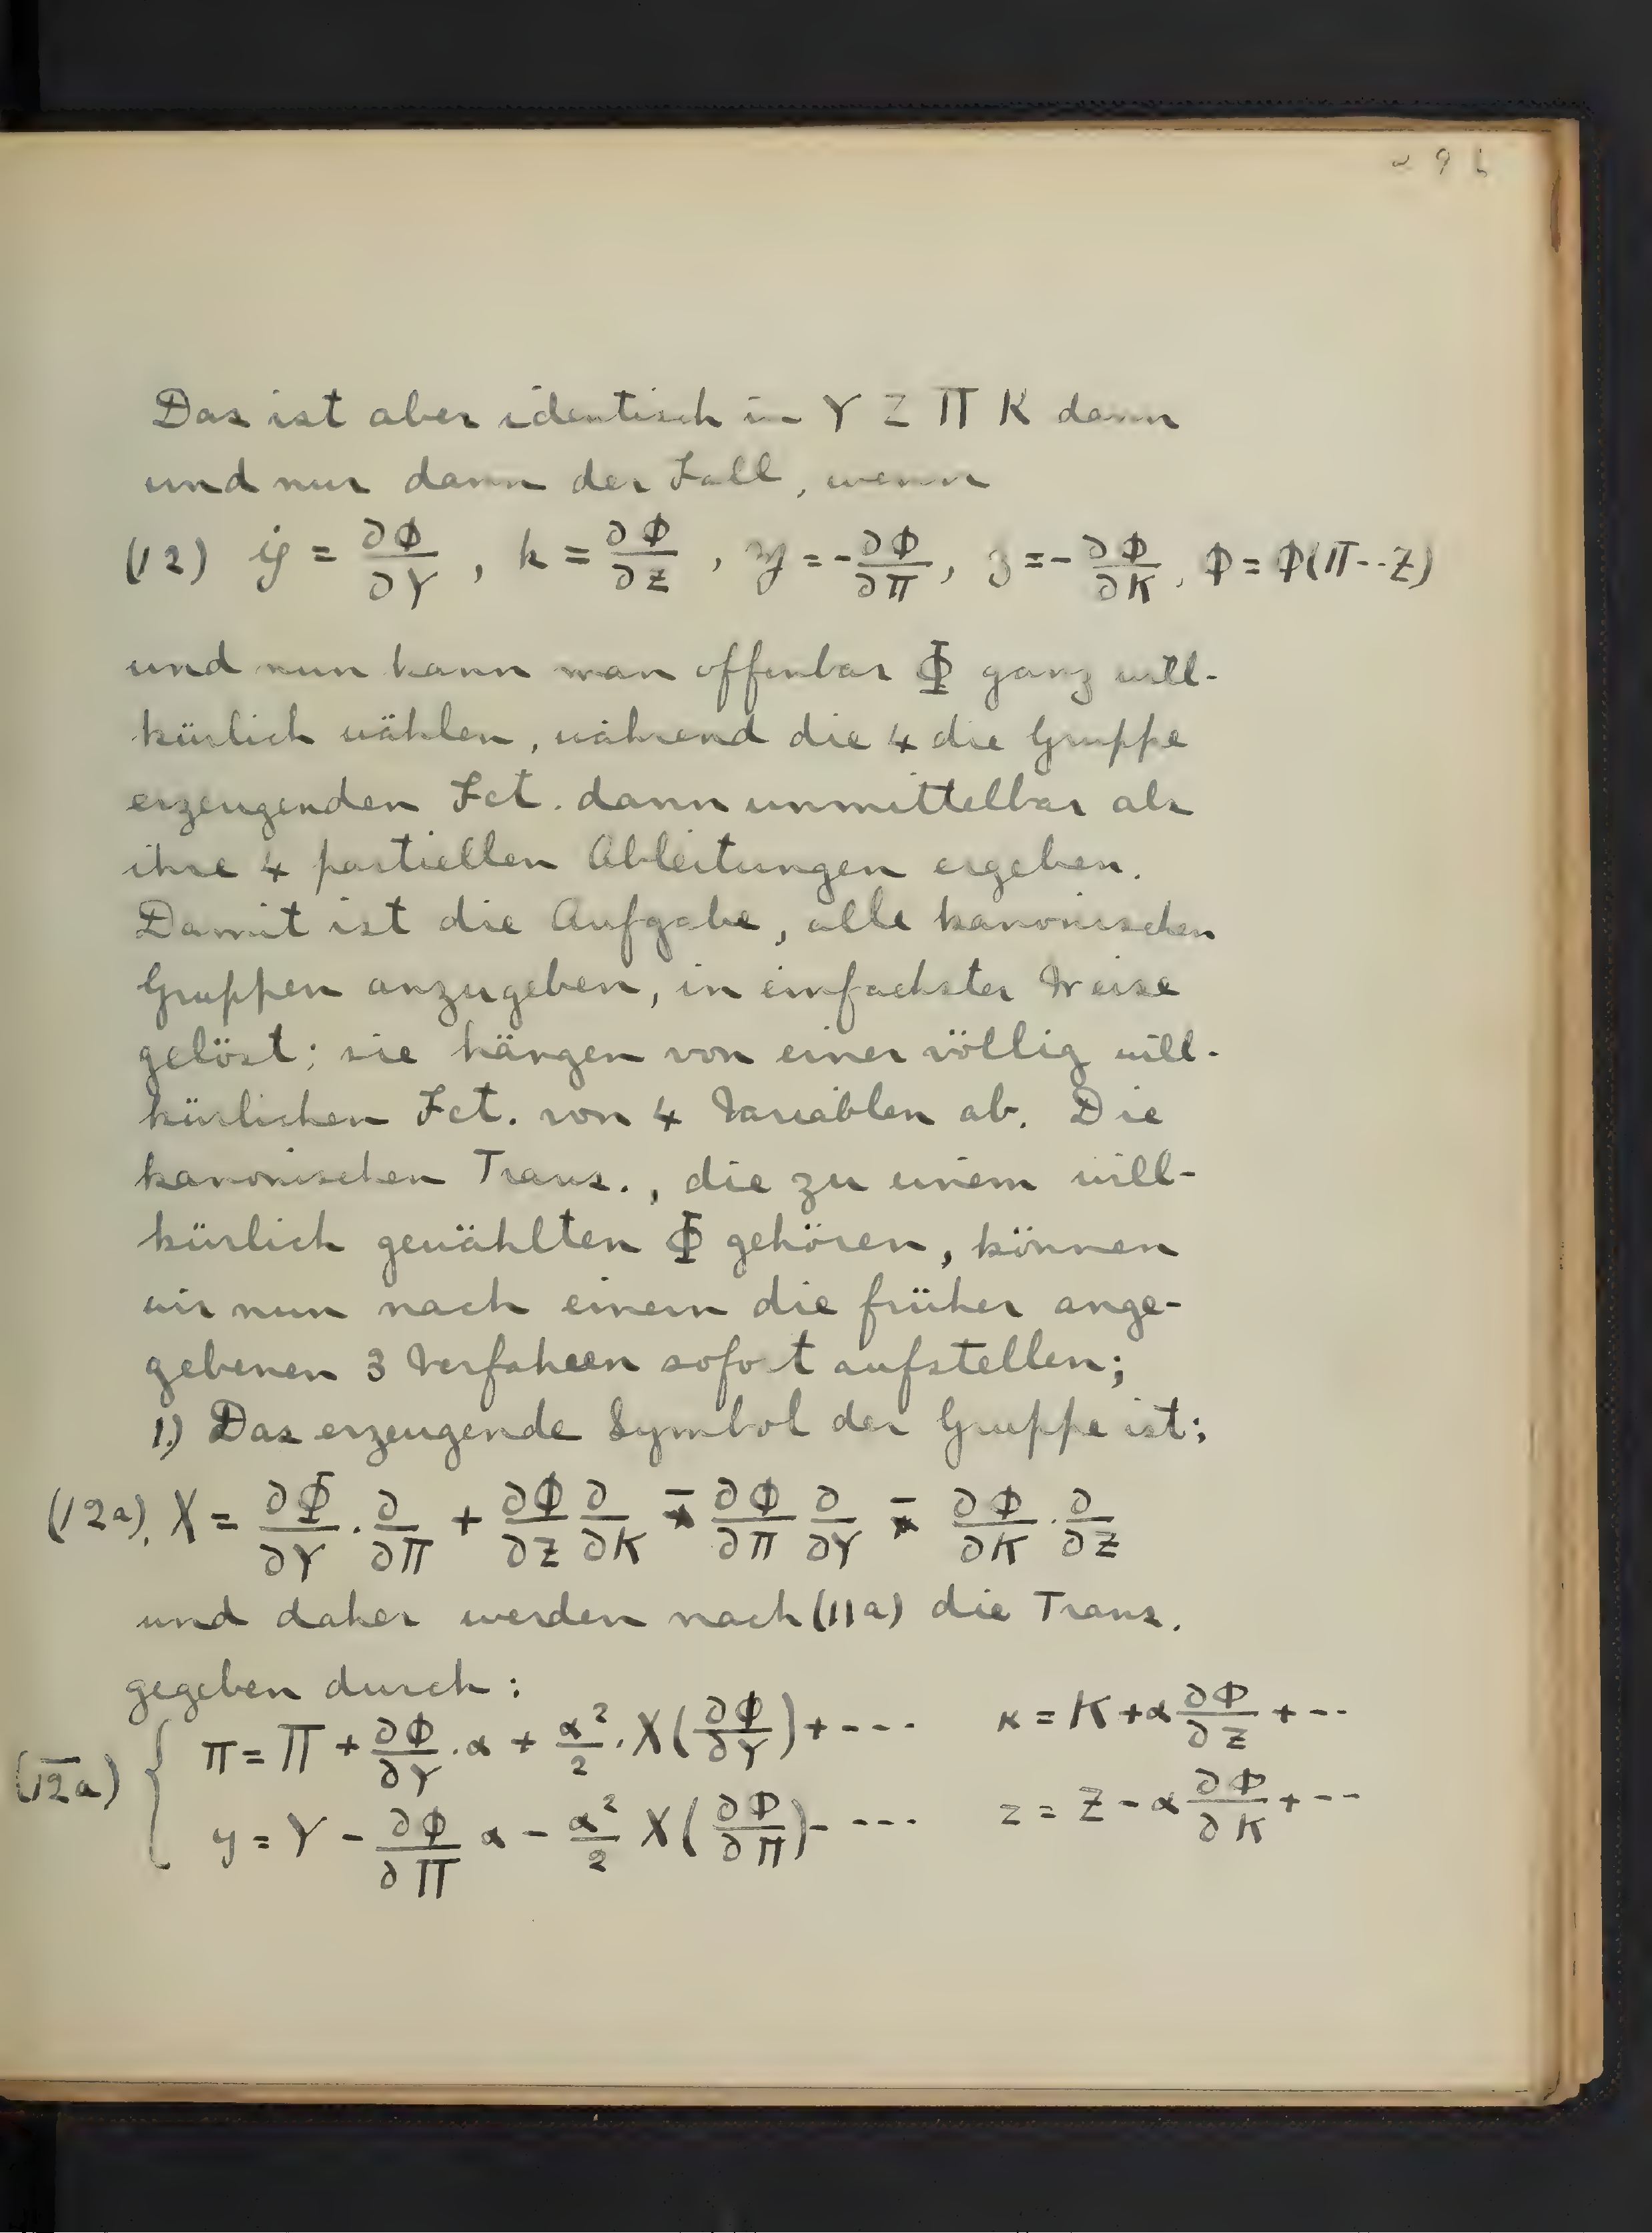 Das ist aber identisch in Y Z Π K dann
und nur dann der Fall, wenn
(12) 𝔭 = ∂Φ/∂Y , k = ∂Φ/∂Z , 𝔶 = -∂Φ/∂Π , 𝔷 = -∂Φ/∂K , Φ = Φ(Π--Z)
und nun kann man offenbar Φ ganz will-
kürlich wählen, während die 4 die Gruppe
erzeugenden Fct. dann unmittelbar als
ihre 4 partiellen Ableitungen ergeben.
Damit ist die Aufgabe, alle kanonischen
Gruppen anzugeben, in einfachster Weise
gelöst; sie hängen von einer völlig will-
kürlichen Fct. von 4 Variablen ab. Die
kanonischen Trans., die zu einem will-
kürlich gewählten Φ gehören, können
wir nun nach einem die früher ange-
gebenen 3 Verfahren sofort aufstellen;
1.) Das erzeugende Symbol der Gruppe ist:
(12a). X = ∂Φ/∂Y · ∂/∂Π + ∂Φ/∂Z ∂/∂K - ∂Φ/∂Π ∂/∂Y - ∂Φ/∂K · ∂/∂Z
und daher werden nach (11a) die Trans.
gegeben durch:
(1̅2̅a) { π = Π + ∂Φ/∂Y · α + α²/2 · X(∂Φ/∂Y) + --- κ = K + α ∂Φ/∂Z + --
y = Y - ∂Φ/∂Π α - α²/2 X(∂Φ/∂Π) - --- z = Z - α ∂Φ/∂K + --